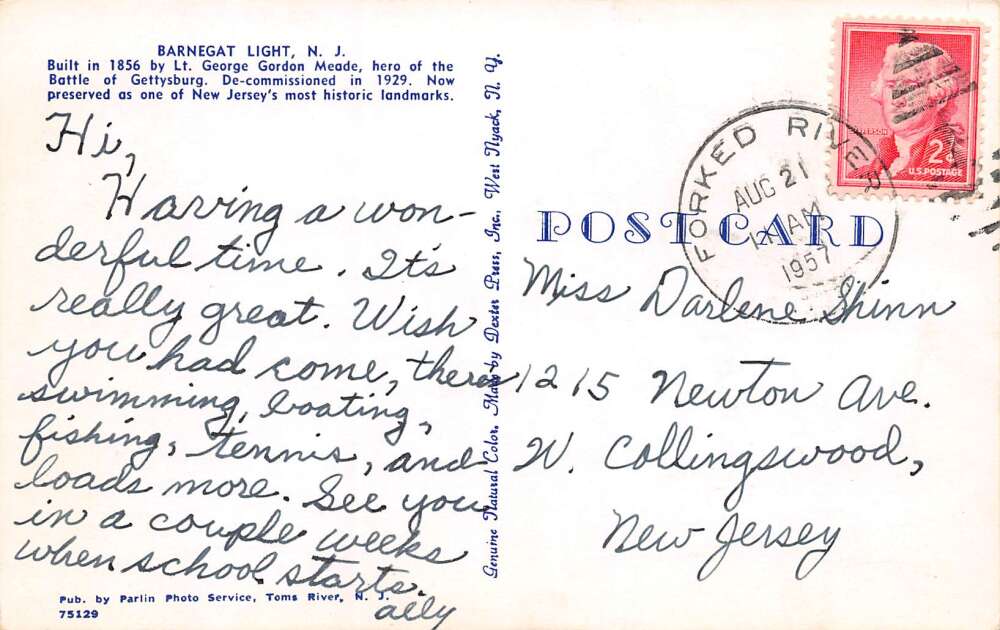 BARNEGAT LIGHT, N. J.
Built in 1856 by Lt. George Gordon Meade, hero of the
Battle of Gettysburg. De-commissioned in 1929. Now
preserved as one of New Jersey's most historic landmarks.
Hi,
Having a won-
derful time. It's
really great. Wish
you had come, theres
swimming, boating,
fishing, tennis, and
loads more. See you
in a couple weeks
when school starts.
Pub. by Parlin Photo Service, Toms River, N. J.
75129
Genuine Natural Color. Made by Dexter Press, Inc., West Nyack, N. Y.
JEFFERSON
2¢
U.S. POSTAGE
FORKED RIVER
AUG 21
AM
1957
POST CARD
Miss Darlene Shinn
1215 Newton Ave.
W. Collingswood,
New Jersey